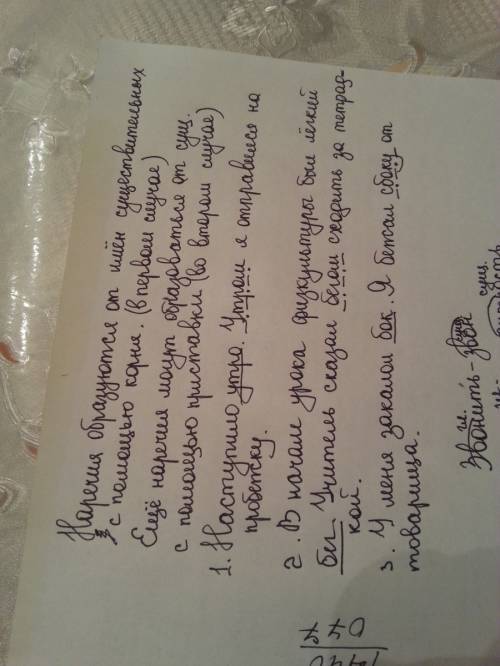 Наречия образуются от имён существительных
с помощью корня. (в первом случае)
Ещё наречия могут образоваться от сущ.
с помощью приставки (во втором случае)
1. Наступило утро. Утром я отправилась на
пробежку.
2. В начале урока физкультуры был лёгкий
бег. Учитель сказал бегом сходить за тетрад-
кой.
3. У меня заколол бок. Я бежал сбоку от
товарища.
гл. сущ.
Звонить - звон